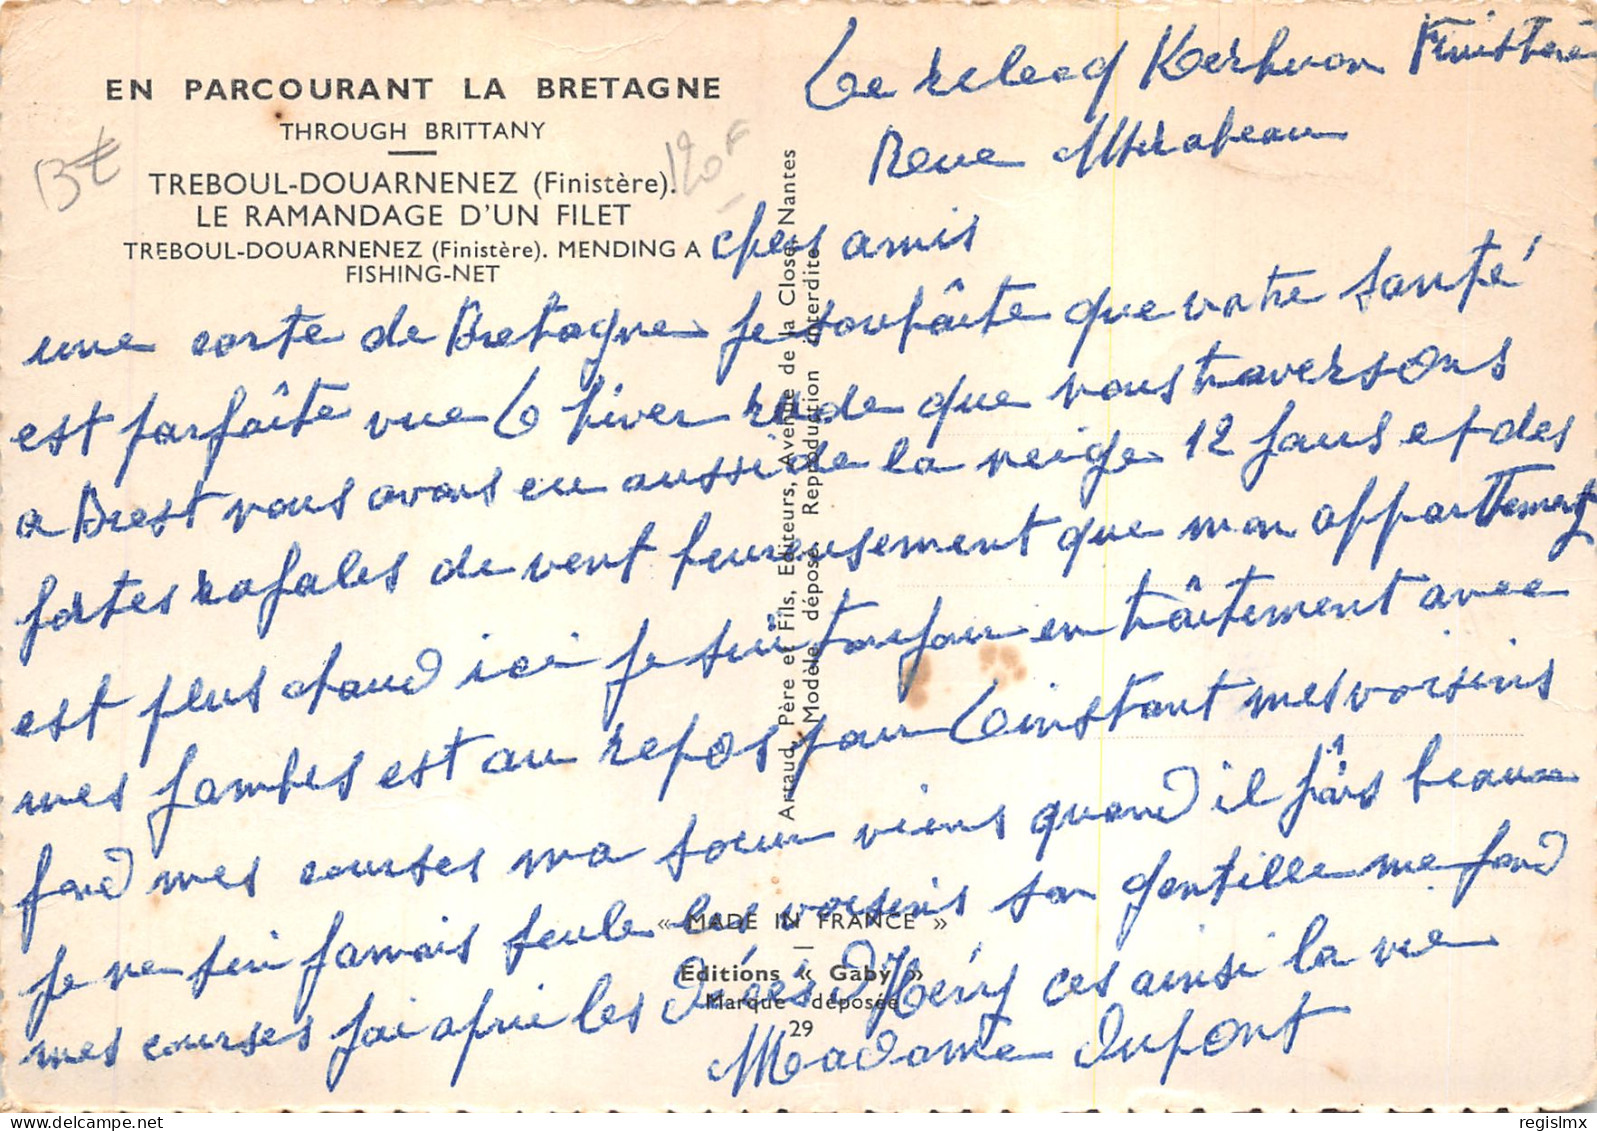 EN PARCOURANT LA BRETAGNE
THROUGH BRITTANY
TREBOUL-DOUARNENEZ (Finistère).
LE RAMANDAGE D'UN FILET
TREBOUL-DOUARNENEZ (Finistère). MENDING A
FISHING-NET
120F
Artaud Père et Fils, Editeurs, Avenue de la Close, Nantes
Modèle déposé. Reproduction interdite.
Le relecq Kerhuon Finistère
Reue Mirabeau
chers amis
une carte de Bretagne je souhâite que votre santé
est parfâite vue L hiver rude que vous traversons
a Brest nous avons eu aussi de la neige 12 jours et des
fortes rafales de vent heureusement que mon appartement
est plus chaud ici je suit toujour en trâitement avec
mes jambes est au repos pour L'instant mes voisins
fond mes courses ma soeur viens quand il fâis beaux
je ne sui jamais seule les voisins son gentille me fond
mes courses j'ai apri les décés D'Henry ces ainsi la vie
Madame Dupont
« MADE IN FRANCE »
Editions « Gaby »
Marque déposée
29
regislmx